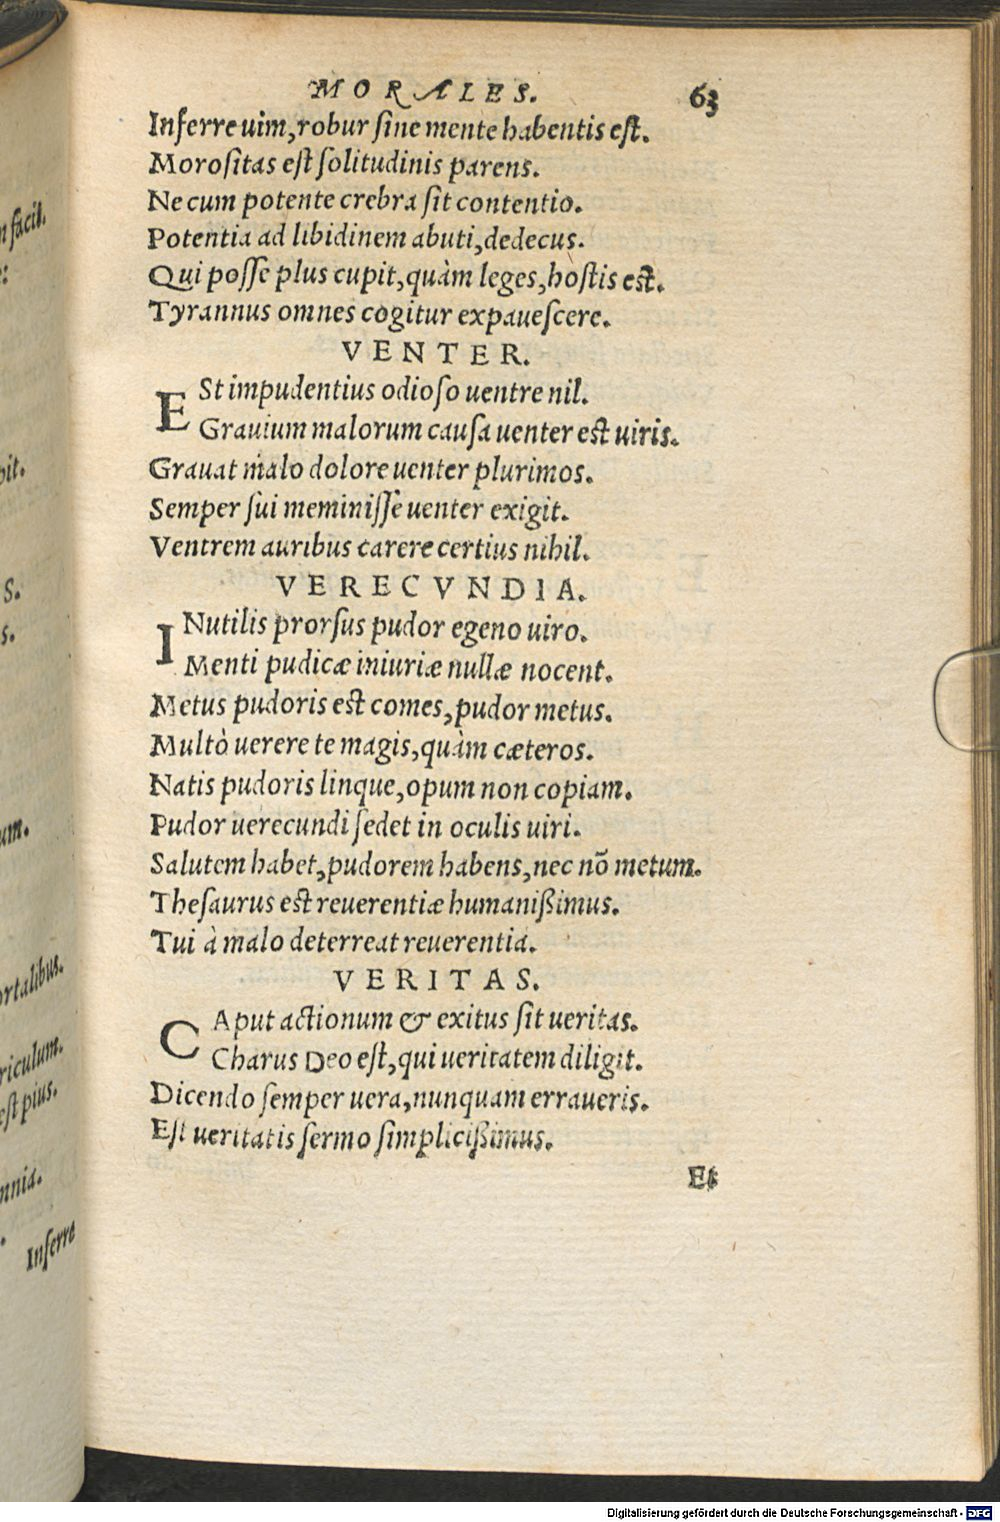 MORALES. 63
Inferre uim, robur sine mente habentis est.
Morositas est solitudinis parens.
Ne cum potente crebra sit contentio.
Potentia ad libidinem abuti, dedecus.
Qui posse plus cupit, quàm leges, hostis est.
Tyrannus omnes cogitur expauescere.
VENTER.
ESt impudentius odioso uentre nil.
Grauium malorum causa uenter est uiris.
Grauat malo dolore uenter plurimos.
Semper sui meminisse uenter exigit.
Ventrem auribus carere certius nihil.
VERECVNDIA.
INutilis prorsus pudor egeno uiro.
Menti pudicæ iniuriæ nullæ nocent.
Metus pudoris est comes, pudor metus.
Multò uerere te magis, quàm cæteros.
Natis pudoris linque, opum non copiam.
Pudor uerecundi sedet in oculis uiri.
Salutem habet, pudorem habens, nec nõ metum.
Thesaurus est reuerentiæ humanißimus.
Tui à malo deterreat reuerentia.
VERITAS.
CAput actionum & exitus sit ueritas.
Charus Deo est, qui ueritatem diligit.
Dicendo semper uera, nunquam erraueris.
Est ueritatis sermo simplicißimus.
Et
facit.
S.
s.
riculum.
est pius.
Inferre
Digitalisierung gefördert durch die Deutsche Forschungsgemeinschaft - DFG